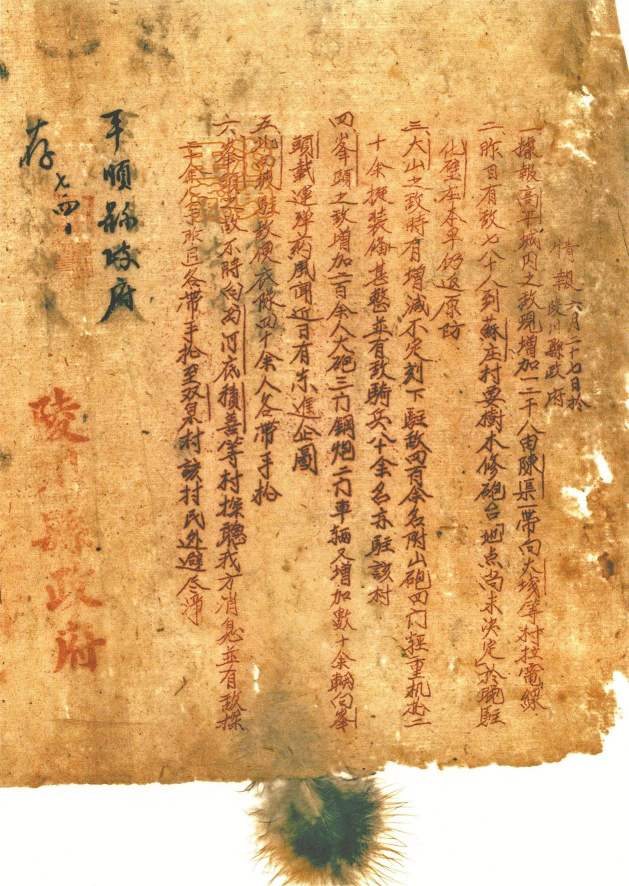 情報 六月二十七日於
陵川縣政府
一採報高平城内之敌現增加一二千人由陳渠一帶向大綫等村拉電線
二昨日有敌七十人到蘇庄村要樹木修砲台地点尚未決定於晚駐
化壁庄本早仍返原防
三大山之敌時有增減不定刻下駐敌四百余名附山砲四门輕重机槍二
十余挺装俻甚整並有敌騎兵八十余名亦駐該村
四峯頭之敌增加二百余人大砲三门鋼炮二门車輛又增加數十余輛向峯
頭載運弹葯風闻近日有东進企圖
五 駐敌便衣隊四十余人各带手抢
六峯頭之敌不時向 河底積善等村探聽我方消息並有敌探
二十余人 各帶手抢至双泉村該村民外避尽淨
陵川縣政府
平順縣政府
存 七、四、